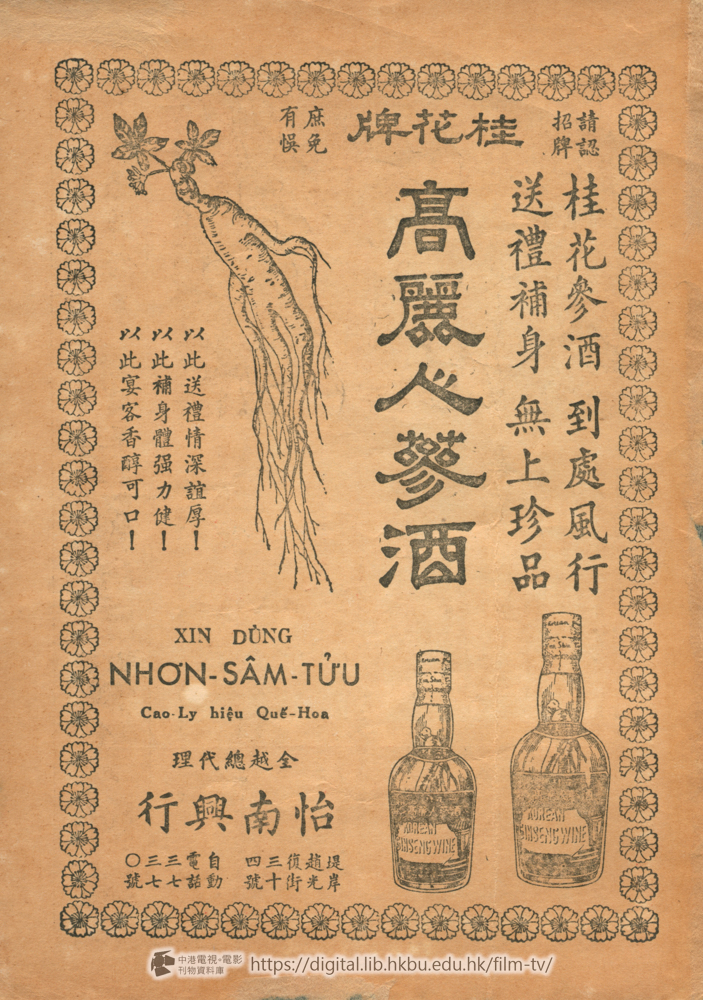 請認
招牌
桂花牌
庶免
有悞
桂花參酒 到處風行
送禮補身 無上珍品
高麗人蔘酒
以此送禮情深誼厚！
以此補身體强力健！
以此宴客香醇可口！
XIN DÙNG
NHƠN-SÂM-TỬU
Cao-Ly hiệu Quế-Hoa
全越總代理
怡南興行
堤岸趙光復街三十四號
自動電話三七三七〇號
KOREAN
GINSENG WINE
KOREAN
GINSENG WINE
中港電視・電影
刊物資料庫
https://digital.lib.hkbu.edu.hk/film-tv/